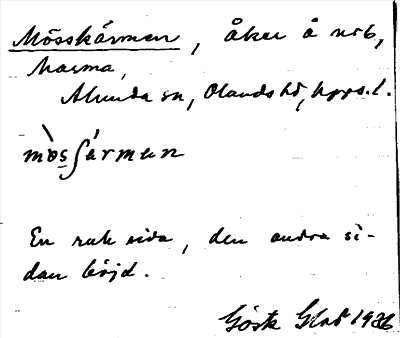 Mösskärmen, åker å nr 6,
Marma,
Alunda sn, Olands hd, Upps. l.
mòsʃármen
En rak sida, den andra si-
dan böjd.
Gösta 1936